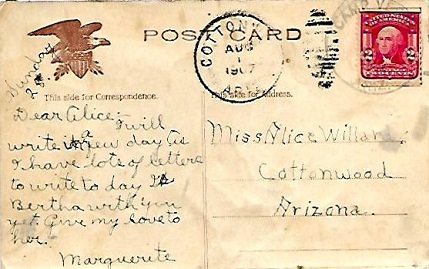 POST CARD
COTTONW
AUG
1
1907
UNITED STATES
2 2
TWO CENTS
Sunday
28th
This side for Correspondence.
This side for Address.
Dear Alice:-
I will
write a new day as
I have lots of letters
to write to day Is
Bertha with you
yet Give my love to
her.
Marguerite
Miss Alice Willard
Cottonwood
Arizona.